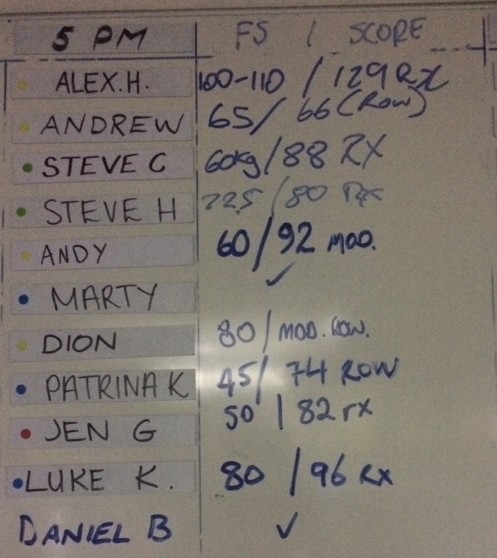 5 PM FS / SCORE
ALEX.H. 100-110 / 129 RX
ANDREW 65/ 66 (ROW)
STEVE C 60kg/88 RX
STEVE H 22.5 /80 RX
ANDY 60/92 MOD.
MARTY ✓
DION 80/MOD. ROW.
PATRINA K 45/ 74 ROW
JEN G 50 / 82 rx
LUKE K. 80 /96 RX
DANIEL B ✓